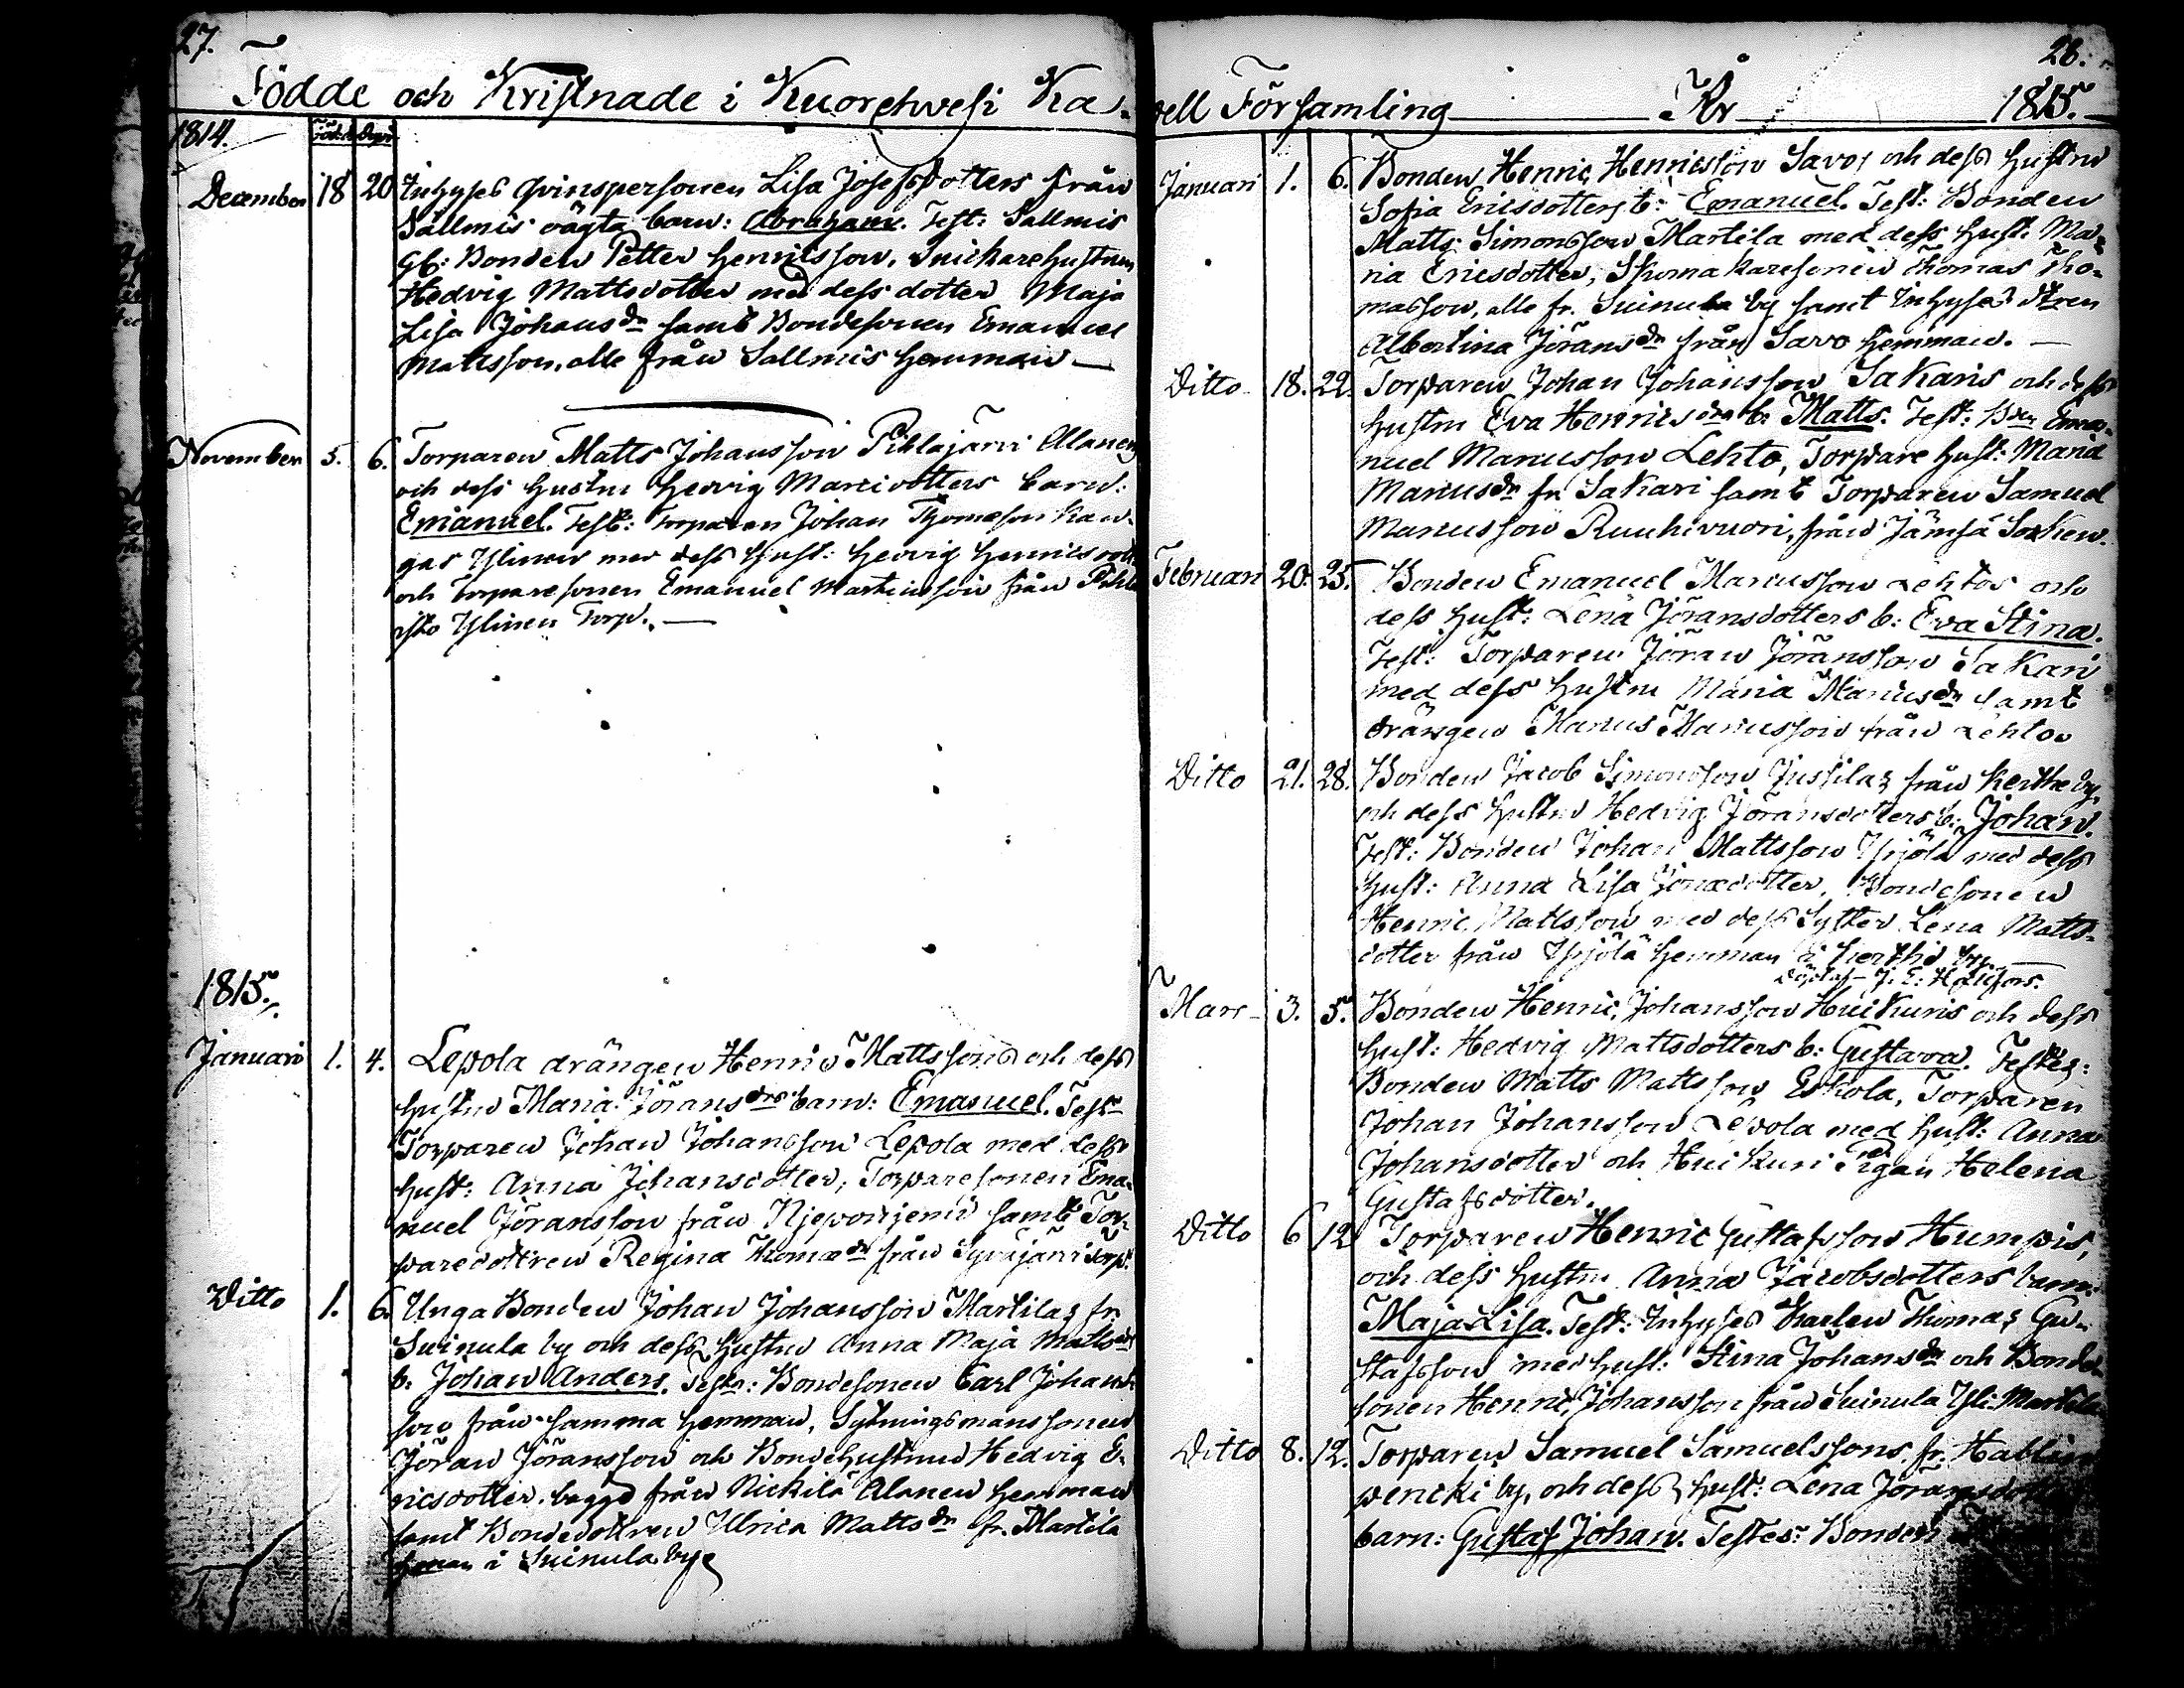 27.
Födde och Kristnade i Kuorehvesi Ka-
1814. Födde Döpte
December 18 20 Inhyses qvinspersonen Lisa Josefsdotters från
Sallmis oägta barn: Abraham. Test: Sallmis
Gb: Bonden Petter Henricsson, Snickarehustrun
Hedvig Mattsdotter med dess dotter Maja
Lisa Johansdr samt Bondesonen Emanuel
Mattsson, alle från Sallmis hemman —
November 5. 6. Torparen Matts Johansson Pihlajärvi Alanen
och dess hustru Hedvig Marcidotters barn:
Emanuel. Test: Torparen Johan Thomeson Kan-
gas Ylinen med dess Hust: Hedvig Henricsdott
och Torparesonen Emanuel Martinsson från Pihla
isto Ylinen Torp. —
1815.
Januari 1. 4. Lepola drängen Henric Mattsons och dess
hustru Maria Jöransdrs barn: Emanuel. Test:
Torparen Johan Johansson Lepola med dess
hust: Anna Johansdotter, Torparesonen Ema-
nuel Jöransson från samt Tor-
paredottren Regina Thomædr från Syväjärvi Torp.
Ditto 1. 6. Unga Bonden Johan Johansson Martilas fr.
Suinula by och dess Hustru Anna Maja Mattsdrs
b. Johan Anders. Test: Bondesonen Carl Johans-
son från samma hemman, Sytningsmanssonen
Jöran Jöransson och Bondehustrun Hedvig E-
ricsdotter. bägge från Nickilä Alanen hemman
samt Bondedottren Ulrica Mattsdr fr. Martila
heman i Suinula by
28.
pell Församling År 1815.
Januari 1. 6. Bonden Henric Henricsson Savos och dess hustru
Sofia Ericsdotters b: Emanuel. Test: Bonden
Matts Simonsson Martila med dess hust: Ma-
ria Ericsdotter, Skomakaresonen Thomas Tho-
masson, alle fr. Suinula by samt Inhyses dtren
Albertina Jöransdr från Savo hemman. —
Ditto 18. 22. Torparen Johan Johansson Sakaris och dess
hustru Eva Henricsdrs b: Matts. Test: Bdn Ema-
nuel Marcusson Lehto, Torpare hust: Maria
Marcusdr fr. Sakari samt Torparen Samuel
Marcusson Ruuhivuori, från Jämsä Soken.
Februari 20. 25. Bonden Emanuel Marcusson Lehtos och
dess hust: Lena Jöransdotters b: Eva Stina.
Test: Torparen Jöran Jöransson Sakari
med dess hustru Maria Marcusdr samt
drängen Marcus Marcusson från Lehto
Ditto 21. 28. Bonden Jacob Simonsson Jussilas från Kerthe by,
och dess hustru Hedvig Jöransdotters b: Johan.
Test: Bonden Johan Mattsson Yrjölä med dess
hust: Anna Lisa Jonædotter, Bondesonen
Henric Mattsson med dess Syster Lena Matts-
dotter från Yrjölä hemman i by.
J. E.
Mars 3. 5. Bonden Henric Johansson Huikuris och dess
hust: Hedvig Mattsdotters b: Gustava. Testes:
Bonden Matts Mattsson Eskola, Torparen
Johan Johansson Lepola med hust: Anna
Johansdotter och Huikuri Pigan Helena
Gustafsdotter.
Ditto 6 12 Torparen Henric Gustafsson Humpis,
och dess hustru Anna Jacobsdotters barn:
Maja Lisa. Test: Inhyses Karlen Thomas Gu-
stafsson med hust: Stina Johansdr och Bonde-
sonen Henric Johansson från Suinula Yli-Martila
Ditto 8. 12. Torparen Samuel Samuelssons fr. Hallin
pencki by, och dess hust: Lena Jöransdotters
barn: Gustaf Johan. Testes: Bonden